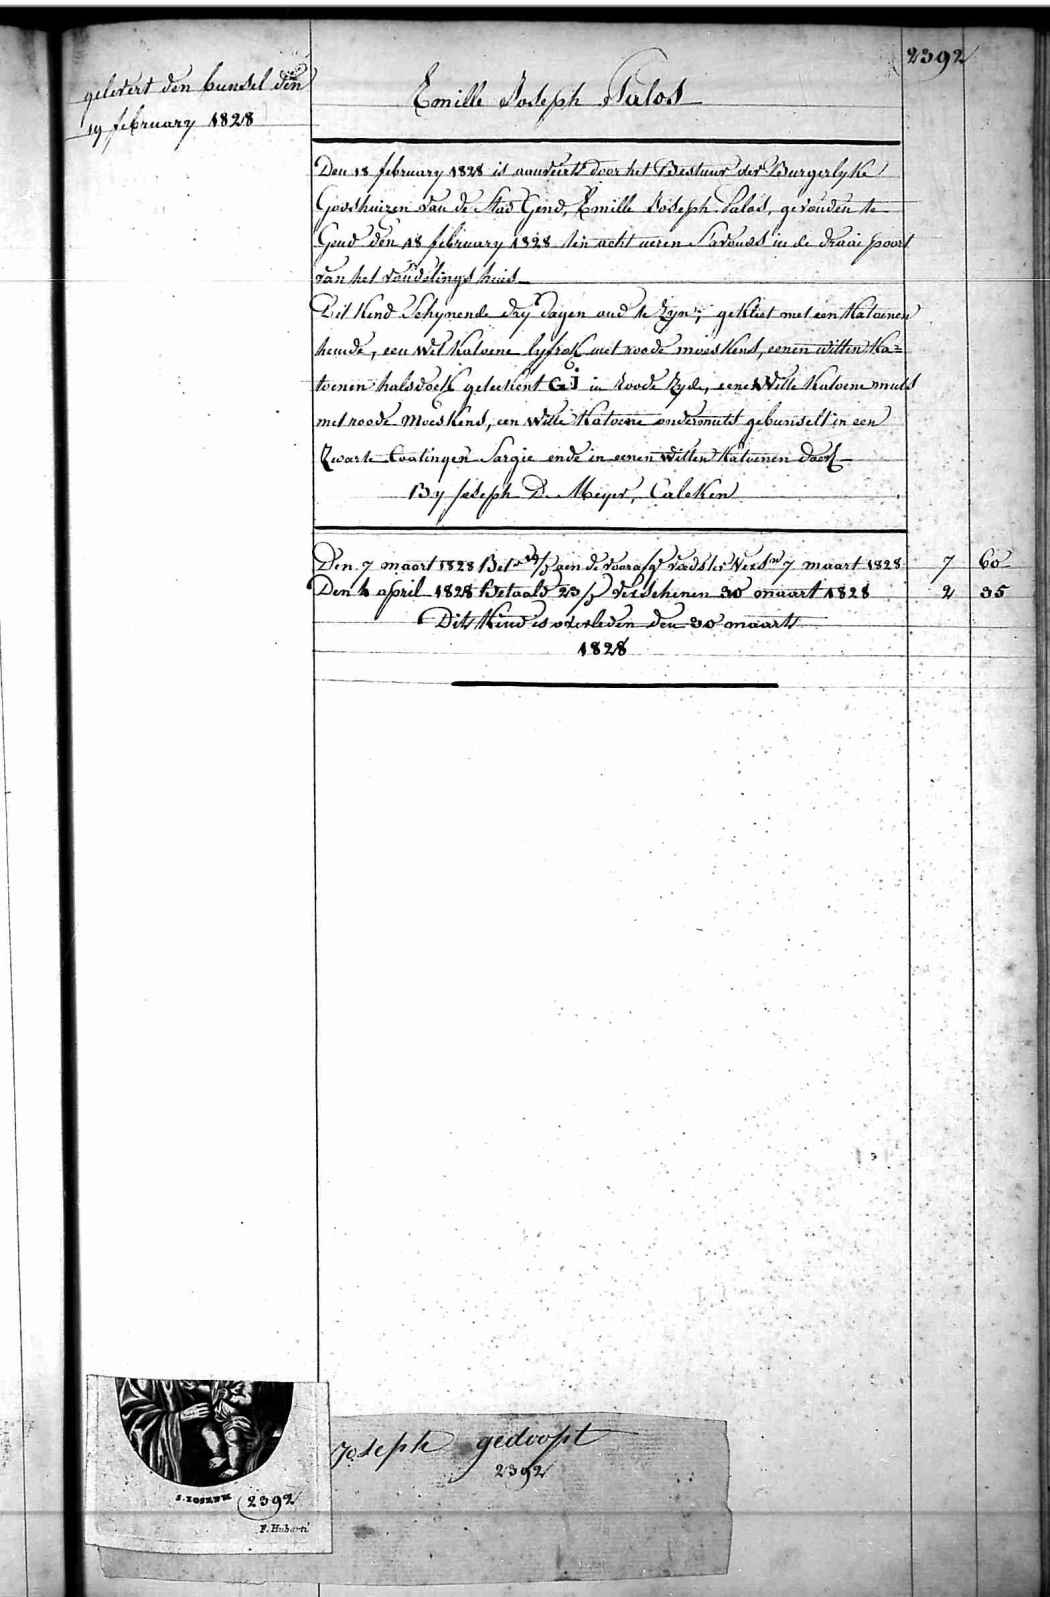 2392
gelevert den bunsel den
19 february 1828
Emille Joseph Palos
Den 18 february 1828 is aanveirt door het Bestuur der Burgerlyke
Godshuizen van de Stad Gend, Emille Joseph Palos, gevonden te
Gend den 18 february 1828 ten acht ueren S'avonds in de draai poort
van het vondelings huis
Dit Kind Schynende dry dagen oud te Zyn, gekleet met een Katoenen
hemde, een wit Katoene lyfrok met roode moeskens, eenen witten Ka=
toenen halsdoek geteekent Gj in roode Zyde, eene Witte Katoene muts
met roode Moeskens, een Witte Katoene ondermuts gebunselt in een
Zwarte Coatingen Sargie ende in eenen witten Katoenen doek
By Joseph D. Meyer, Caleken
Den 7 maart 1828 Bet 19/ aen de voorafg voedster Versn 7 maart 1828 7 60
Den 4 april 1828 Betaald 23/ verschenen 30 maart 1828 2 35
Dit Kind is overleden den 30 maart
1828
S. IOSEPH
2392
F. Huberti
Joseph gedoopt
2392